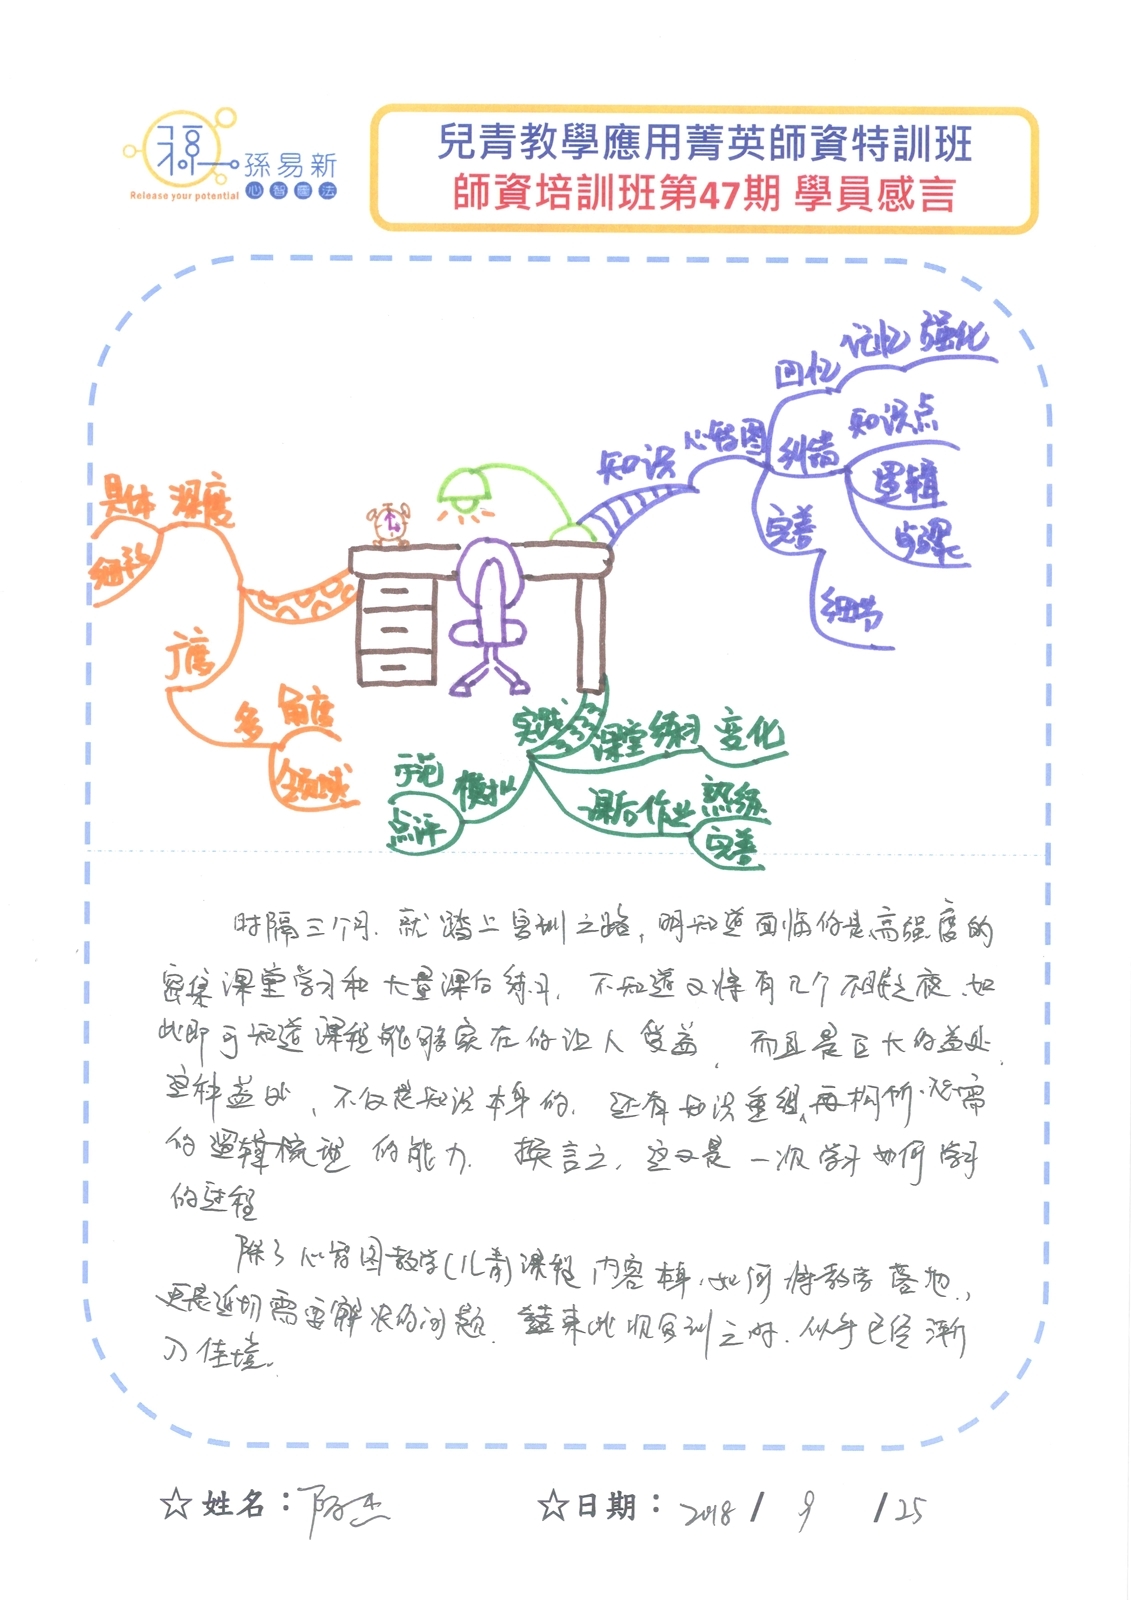 孫易新
心智圖法
Release your potential
兒青教學應用菁英師資特訓班
師資培訓班第47期 學員感言
回忆 记忆 强化
知识 心智图 纠错 知识点
逻辑
步骤
完善
细节
具体 深度
细致
广度
多 角度
领域
实践 课堂练习 变化
示范 模拟
点评
课后作业 熟练
完善
时隔三个月、就踏上实训之路，明知道面临的是高强度的
密集课堂学习和大量课后练习，不知道又将有几个不眠之夜、如
此即可知道课程能够实在的让人受益，而且是巨大的益处、
这种益处、不仅是知识本身的，还有知识重组、再构所必需
的逻辑梳理的能力、换言之，这又是一次学习如何学习
的过程
除了心智图教学(儿青)课程内容本身，如何将教学落地，
更是迫切需要解决的问题、结束此次实训之时、似乎已经渐
入佳境。
☆姓名：陈杰 ☆日期：2018 / 9 / 25